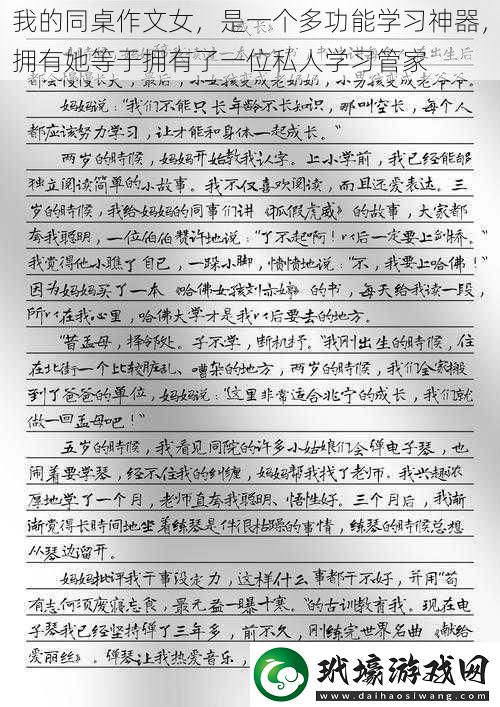 我的同桌作文女，是一个多功能学习神器，
拥有她等于拥有了一位私人学习管家
都会慢慢长大，最后，小女孩变成老奶奶，小男孩变成老爷爷。
妈妈说："我们不能只长年龄不长知识，那叫空长，每个人
都应该努力学习，让才能和身体一起成长。"
两岁的时候，妈妈开始教我认字。上小学前，我已经能够
独立阅读简单的小故事。我不仅喜欢阅读，而且还爱表达。三
岁的时候，我给妈妈的同事们讲《狐假虎威》的故事，大家都
夸我聪明，一位伯伯赞许地说："了不起啊！以后一定要上剑桥。"
我觉得他小瞧了自己，一跺小脚，愤愤地说："不，我要上哈佛！"
因为妈妈买了一本《哈佛女孩刘亦婷》的书，每天给我读一段，
所以在我心里，哈佛大学才是我以后要去的地方。
"昔孟母，择邻处。子不学，断机抒。"我刚出生的时候，住
在北街一个比较脏乱、嘈杂的地方，两岁的时候，我们全家搬
到了爸爸的单位，妈妈说："这里非常适合兆宁的成长，我们就
做一回孟母吧！"
五岁的时候，我看见同院的许多小姑娘们会弹电子琴，也
闹着要学琴，经不住我的纠缠，妈妈帮我找了老师。我兴趣浓
厚地学了一个月，老师直夸我聪明、悟性好。三个月后，我渐
渐觉得长时间地坐着练琴是件很枯燥的事情，练琴的时候总想
从琴边溜开。
妈妈批评我干事没定力，这样什么事都干不好，并用"苟
有恙何须废寝忘食，最无益一暴十寒。"的古训教育我。现在电
子琴我已经坚持弹了三年多，前不久，刚练完世界名曲《献给
爱丽丝》。弹琴让我热爱音乐，
玳壕游戏网
www.daihaosiwang.com